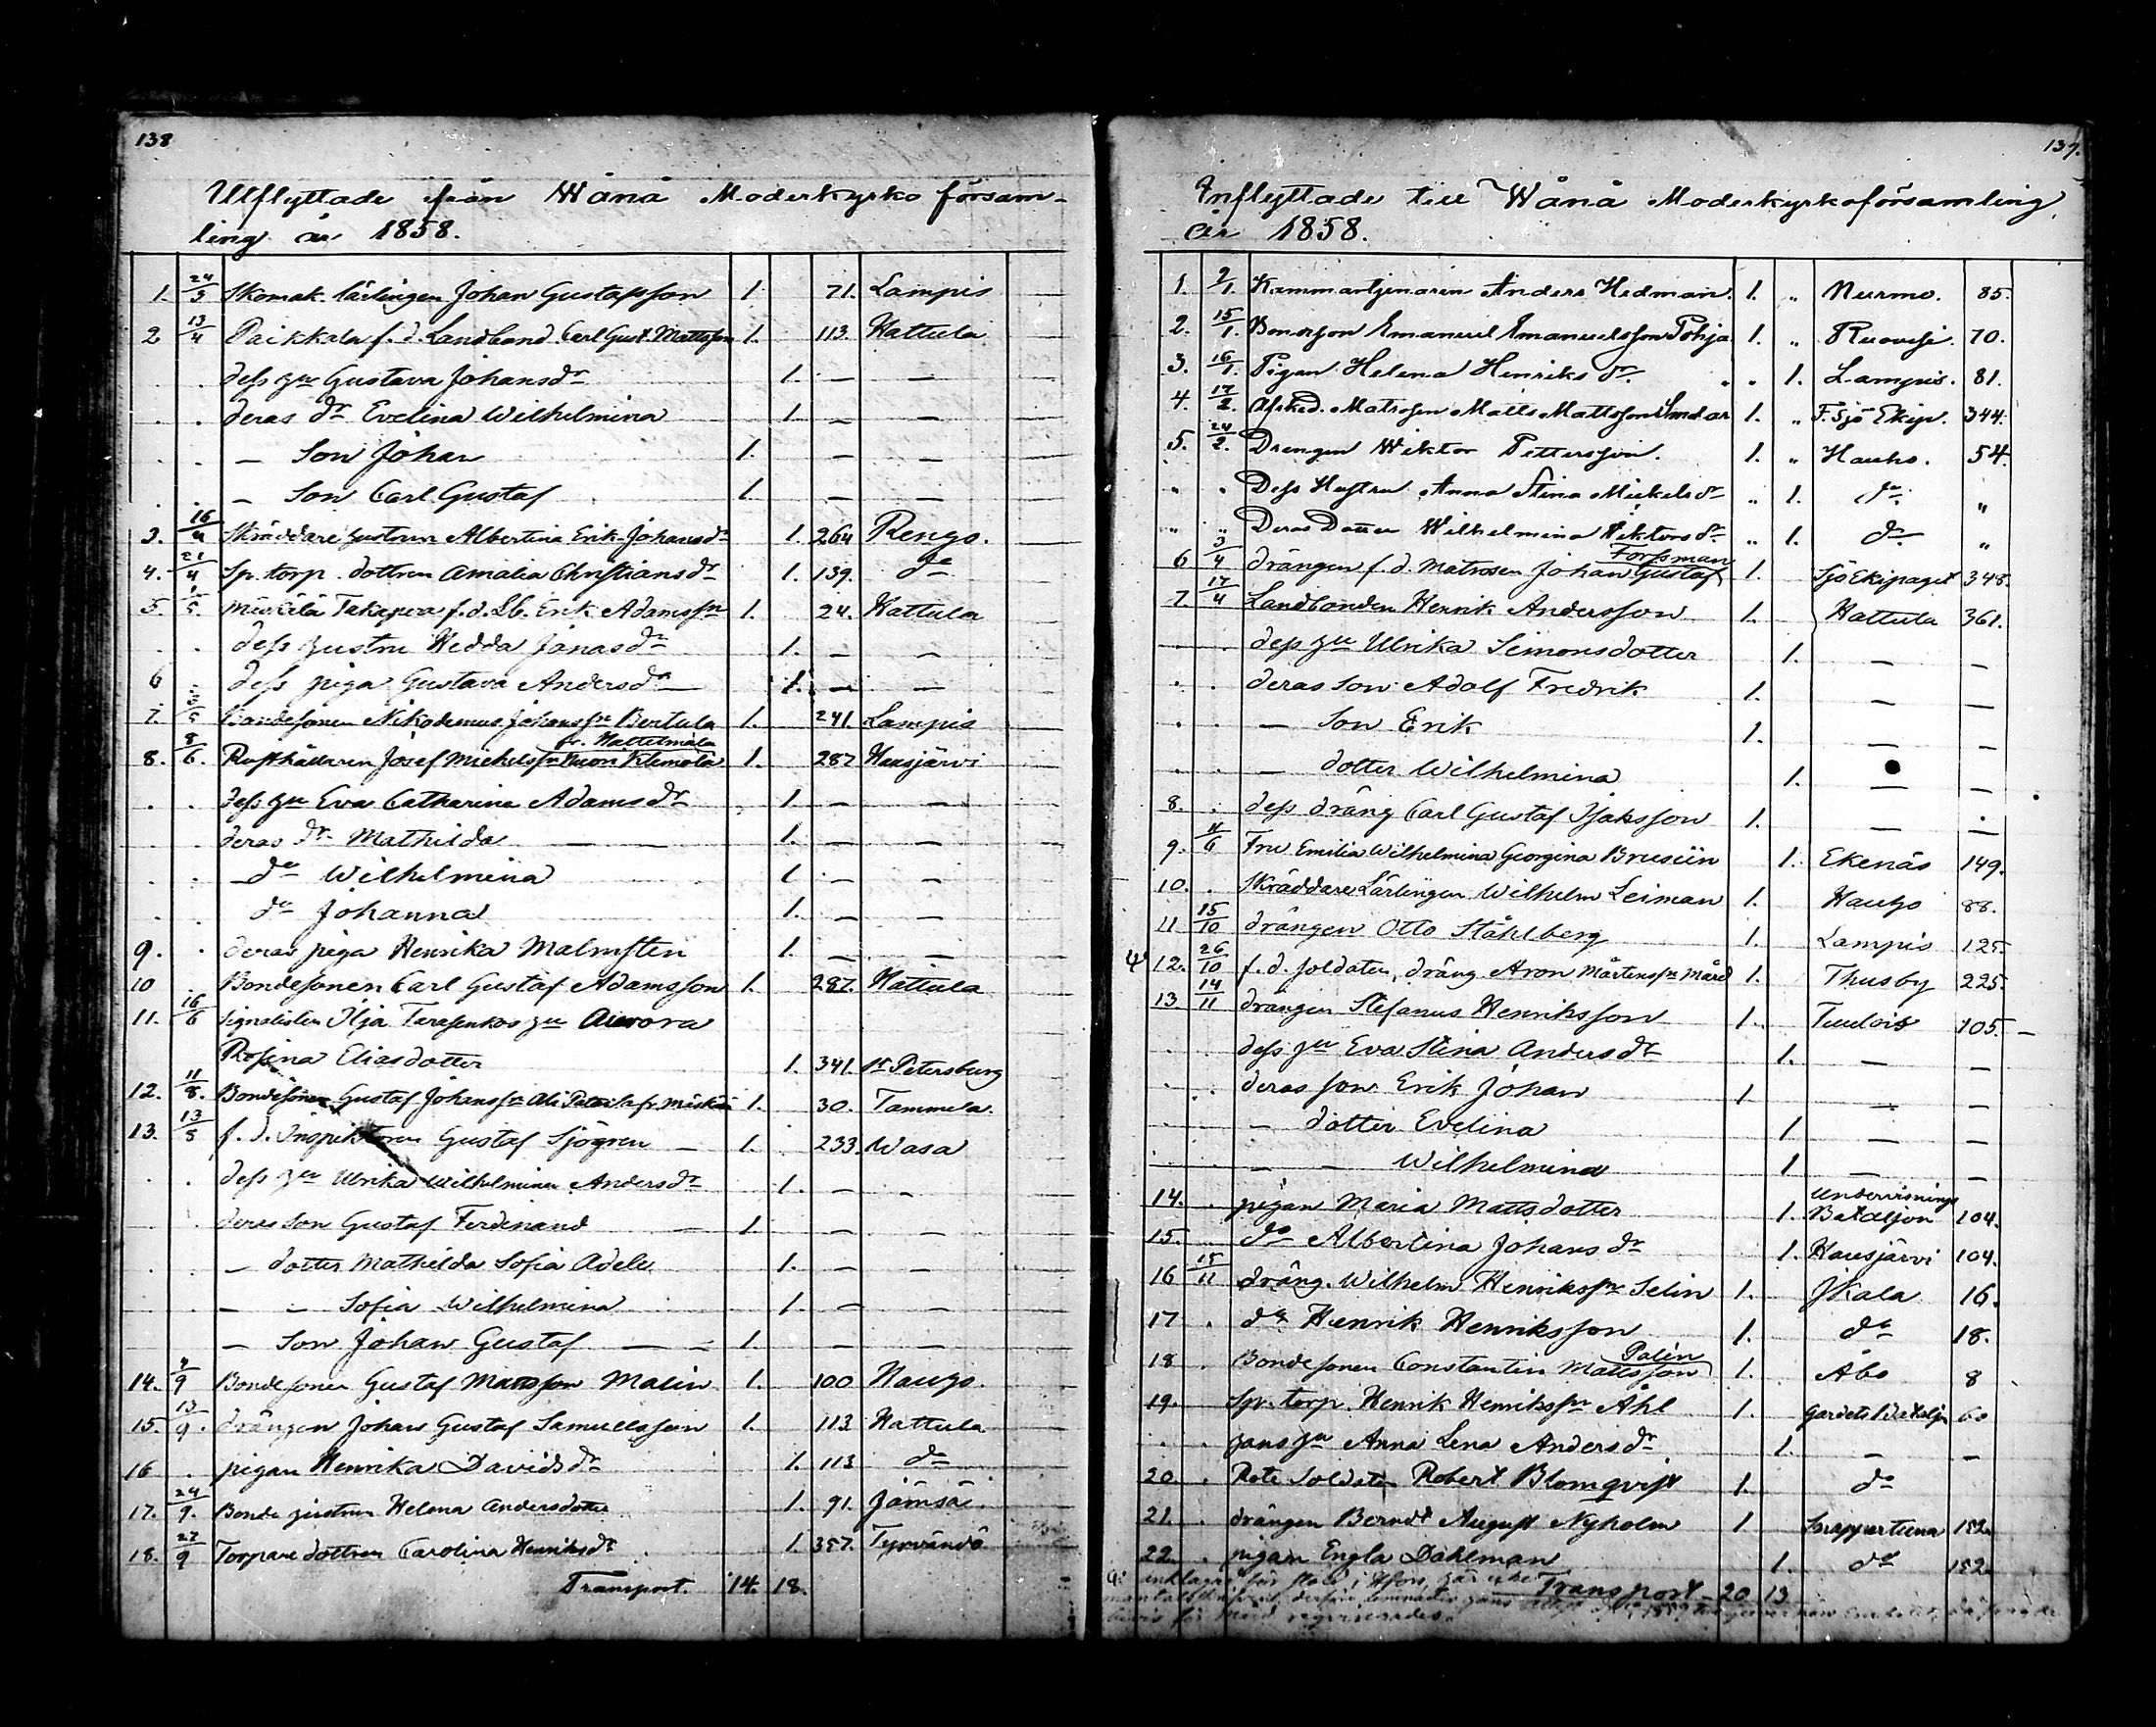 138
Utflyttade från Wånå Moderkyrko försam-
ling år 1858.
1. 24/3 Skomak. lärlingen Johan Gustafsson 1. 71. Lampis
2 13/4 Paikkala f. d. Landbond. Carl Gust. Mattsson 1. 113. Hattula
dess hu Gustava Johansdr 1. — —
deras dr Evelina Wilhelmina 1. — —
— Son Johan 1. — —
— Son Carl Gustaf 1. — —
3. 16/4 Skräddare hustrun Albertina Erik-Johansdr 1. 264 Rengo.
4. 21/4 Sp. torp. dottren Amalia Christiansdr 1. 139. do
5. /5. Takapera f. d. Lb. Erik Adamssn 1. 24. Hattula
dess hustru Hedda Jonasdr 1. — —
6 dess piga Gustava Andersdr — 1. — —
7. 5/5 Bondesonen Nikodemus Johanssn Bertula 1. 241. Lampis
fr. Hattelmala
8. 8/6. Rusthållaren Josef Michelssn Klemola 1. 287 Hausjärvi
dess hu Eva Catharina Adamsdr 1. — —
deras dr Mathilda — — 1. — —
— do Wilhelmina 1 — —
do Johanna 1. — —
9. deras piga Henrika Malmsten 1. — —
10 Bondesonen Carl Gustaf Adamsson 1. 287. Hattula
11. 16/6 Signalisten Ilja Tarasenkos hu Aurora
Rosina Eliasdotter 1. 341. St Petersburg
12. 11/8. Bondesonen Gustaf Johanssn Ali 1. 30. Tammela.
13. 13/8 f. d. Inspektoren Gustaf Sjögren — 1. 233. Wasa
dess hu Ulrika Wilhelmina Andersdr 1. — —
deras son Gustaf Ferdinand — 1. — —
— dotter Mathilda Sofia Adele 1. — —
— — Sofia Wilhelmina 1. — —
— Son Johan Gustaf — — 1. — —
14. /9 Bondesonen Gustaf Matsson Malin 1. 100 Hauho.
15. 13/9. drängen Johan Gustaf Samuelsson 1. 113 Hattula
16 . pigan Henrika Davidsdr 1. 113 do
17. 24/9. Bonde hustrun Helena Andersdotter 1. 91. Jämsä.
18. 27/9 Torpare dottren Carolina Henriksdr 1. 357. Tyrvändö
Transport. 14. 18.
137.
Inflyttade till Wånå Moderkyrkoförsamling
år 1858.
1. 7/1. Kammartjenaren Anders Hedman. 1. „ Nurmo. 85.
2. 15/1. Bonesson Emanuel Emanuelsson Pohja 1. „ Ruovesi. 70.
3. 16/1. Pigan Helena Henriks dr. „ „ 1. Lampis. 81.
4. 17/2. Afsked. Matrosen Matts Mattsson 1. „ F. Sjö Ekip. 344.
5. 24/2. Drengen Wiktor Pettersson. 1. „ Hauho. 54.
„ „ Dess Hustru Anna Stina Mickelsdr „ 1. do „
„ „ Deras Dotter Wilhelmina Wiktorsdr „ 1. do „
Forssman
6 3/4 drängen f. d. matrosen Johan Gustaf 1. Sjö Ekipaget 348.
7. 17/4 Landbonden Henrik Andersson 1. Hattula 361.
dess hu Ulrika Simonsdotter 1. — —
deras Son Adolf Fredrik 1. — —
— Son Erik 1. — —
— dotter Wilhelmina 1. — —
8. dess dräng Carl Gustaf Isaksson 1. — —
9. 11/6 Fru Emilia Wilhelmina Georgina Brusiin 1. Ekenäs 149.
10. . Skräddare Lärlingen Wilhelm Leiman 1. Hauho 88.
11 15/10 drängen Otto Ståhlberg 1. Lampis 125.
12. 26/10 f. d. soldaten, dräng Aron Mårtenssn Mård 1. Thusby 225.
13 14/11 drängen Stefanus Henriksson 1. Tuulois 105. —
dess hu Eva Stina Andersdr 1. — —
deras son Erik Johan 1 — —
— dotter Evelina 1 — —
— — Wilhelmina 1 — —
14. . pigan Maria Mattsdotter 1. Undervisnings Bataljon 104.
15. do Albertina Johansdr 1. Hausjärvi 104.
16 15/11 dräng. Wilhelm Henrikssn Selin 1. Jkala 16.
17 . do Henrik Henriksson 1. do 18.
Palén
18 . Bondesonen Constantin Mattsson 1. Åbo 8
19. Sp. torp. Henrik Henrikssn Åhl 1. Gardets Bataljn 60
hans hu Anna Lena Andersdr 1. — —
20. . Rote Soldaten Robert Blomqvist 1. do
21. . drängen Berndt August Nyholm 1 Snappertuna 152.
22. . pigan Engla Dahlman 1. do 152.
Transport — 20 13